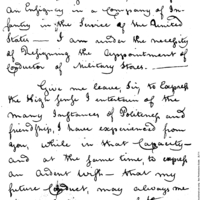 An Ensigncy in a Company of In-
fantry in the Service of the United
States — I am under the necessity
of Resigning the Appointment of
Conductor of Military Stores. —
Give me leave, Sir, to Express
the High sense I entertain of the
many Instances of Politeness and
friendship, I have experienced from
you, while in that Capacity —
and at the same time, to express
an Ardent Wish — that my
future Conduct, may always me